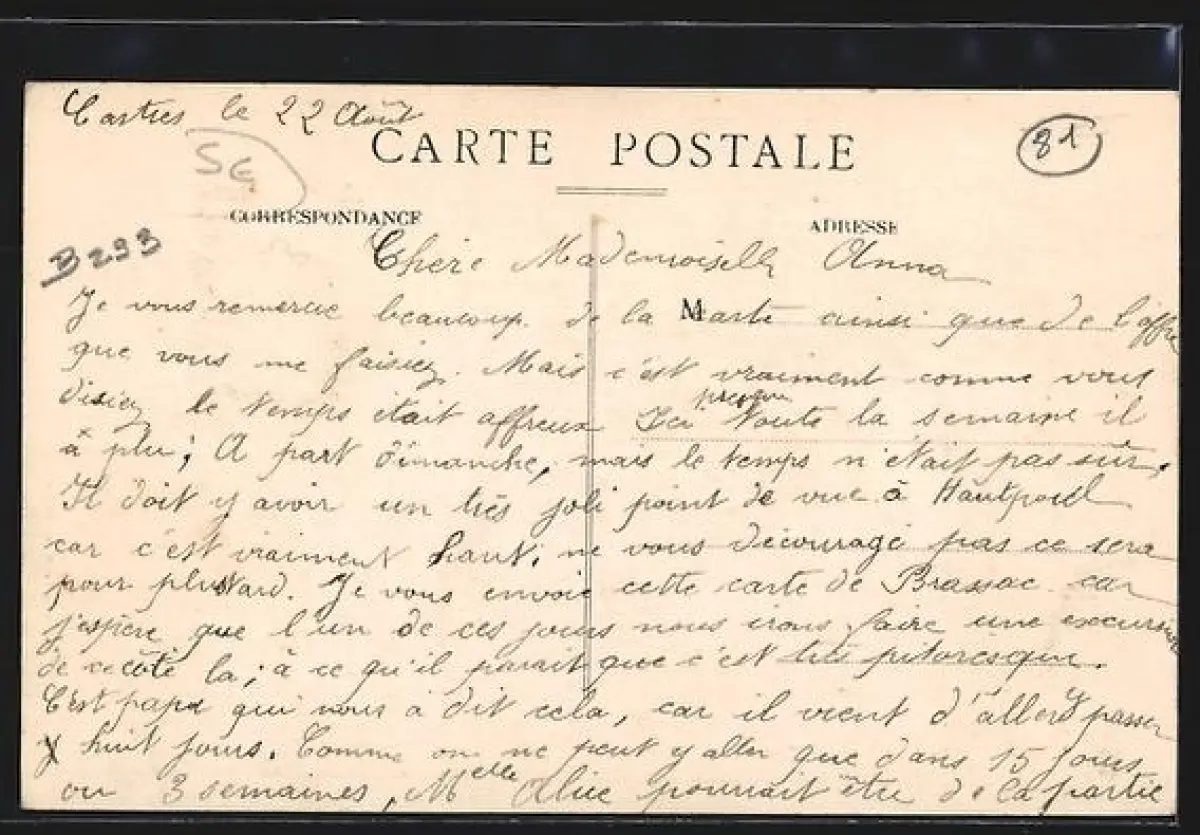 Castres le 22 Août
CARTE POSTALE
81
SG
CORRESPONDANCE
ADRESSE
B293
Chère Mademoiselle Anna
Je vous remercie beaucoup de la carte ainsi que de l'offre
M
que vous me faisiez. Mais c'est vraiment comme vous
disiez le temps était affreux Ici presque toute la semaine il
à plu; A part dimanche, mais le temps n'était pas sûr.
Il doit y avoir un très joli point de vue à Hautpoul
car c'est vraiment haut. ne vous découragé pas ce sera
pour plustard. Je vous envoie cette carte de Brassac car
j'espère que l'un de ces jours nous irons faire une excursion
de ce côté la; à ce qu'il parait que c'est très pitoresque.
C'est papa qui nous a dit cela, car il vient d'aller y passer
huit jours. Comme on ne peut y aller que dans 15 jours
ou 3 semaines, Melle Alice pourrait être de la partie